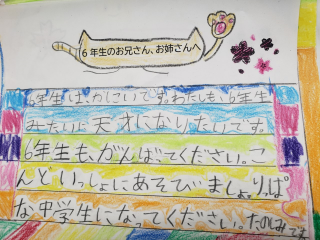 6年生のお兄さん、お姉さんへ
6年生は、かしこいです。わたしも、6年生
みたいに天才になりたいです。
6年生も、がんばってください。こ
んどいっしょにあそびましょ。りっぱ
な中学生になってください。たのしみです